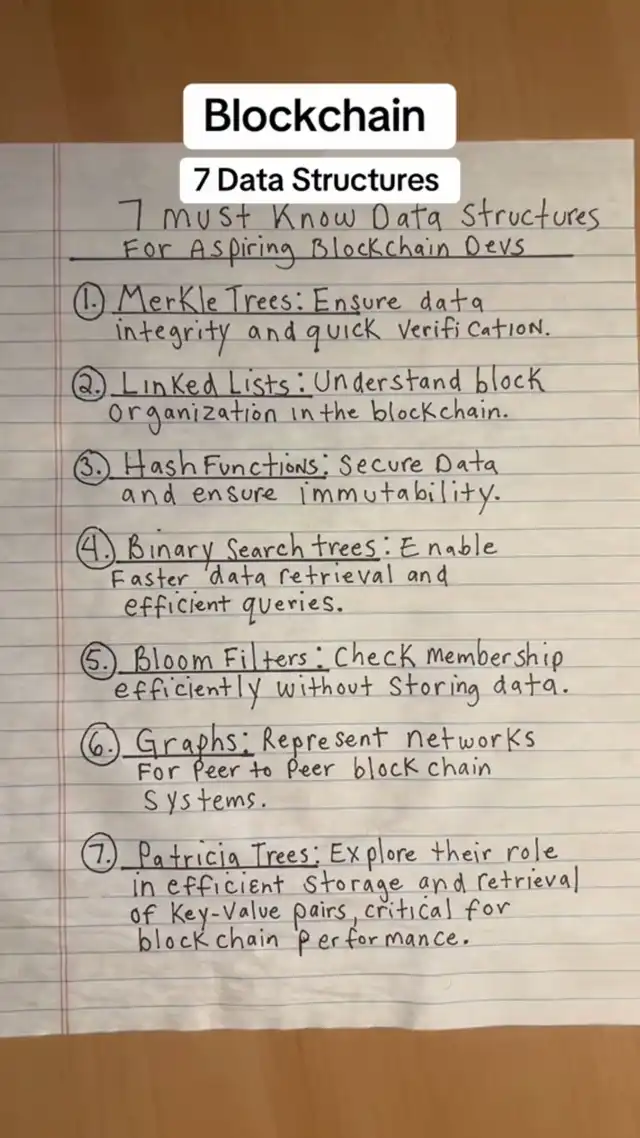 Blockchain
7 Data Structures
7 Must Know Data Structures
For Aspiring Blockchain Devs
1. Merkle Trees: Ensure data
integrity and quick verification.
2. Linked Lists: Understand block
organization in the blockchain.
3. Hash Functions: Secure Data
and ensure immutability.
4. Binary Search trees: Enable
Faster data retrieval and
efficient queries.
5. Bloom Filters: Check membership
efficiently without storing data.
6. Graphs: Represent networks
For Peer to Peer block chain
Systems.
7. Patricia Trees: Explore their role
in efficient storage and retrieval
of Key-Value pairs, critical for
block chain performance.